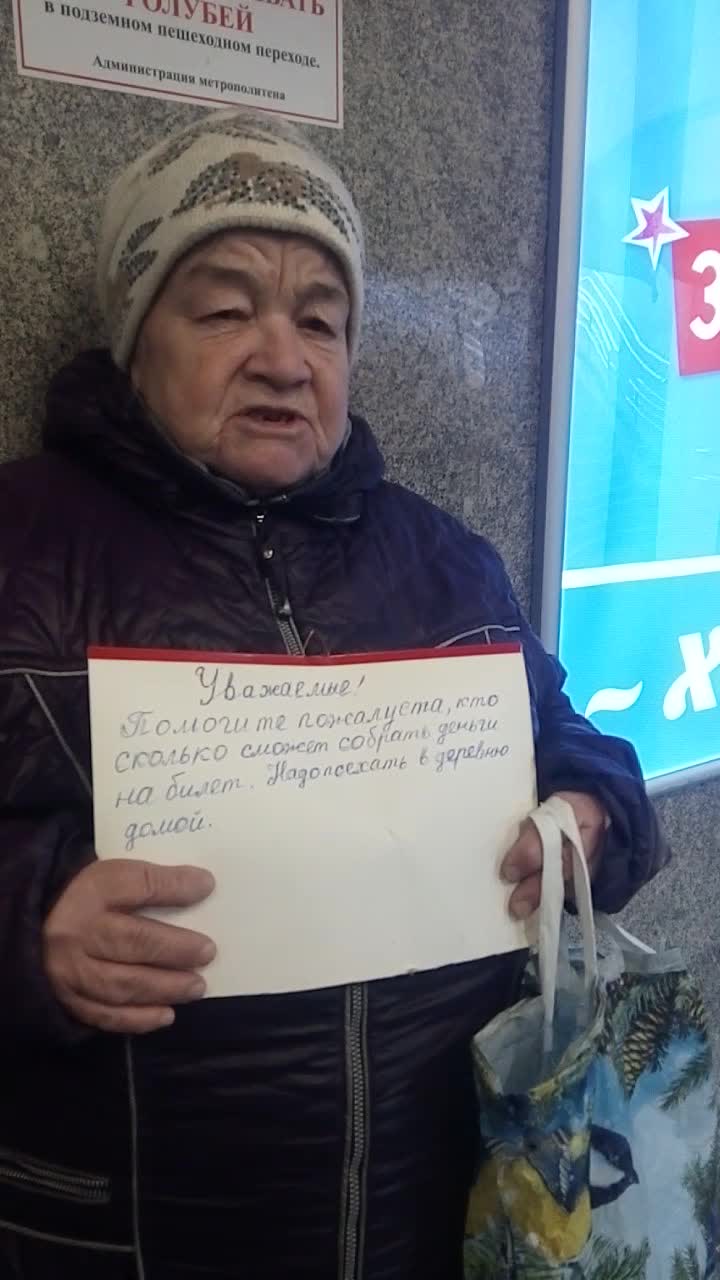 ГОЛУБЕЙ
в подземном пешеходном переходе.
Администрация метрополитена
З
~ х
Уважаемые!
Помогите пожалуста, кто
сколько сможет собрать деньги
на билет. Надопоехать в деревню
домой.